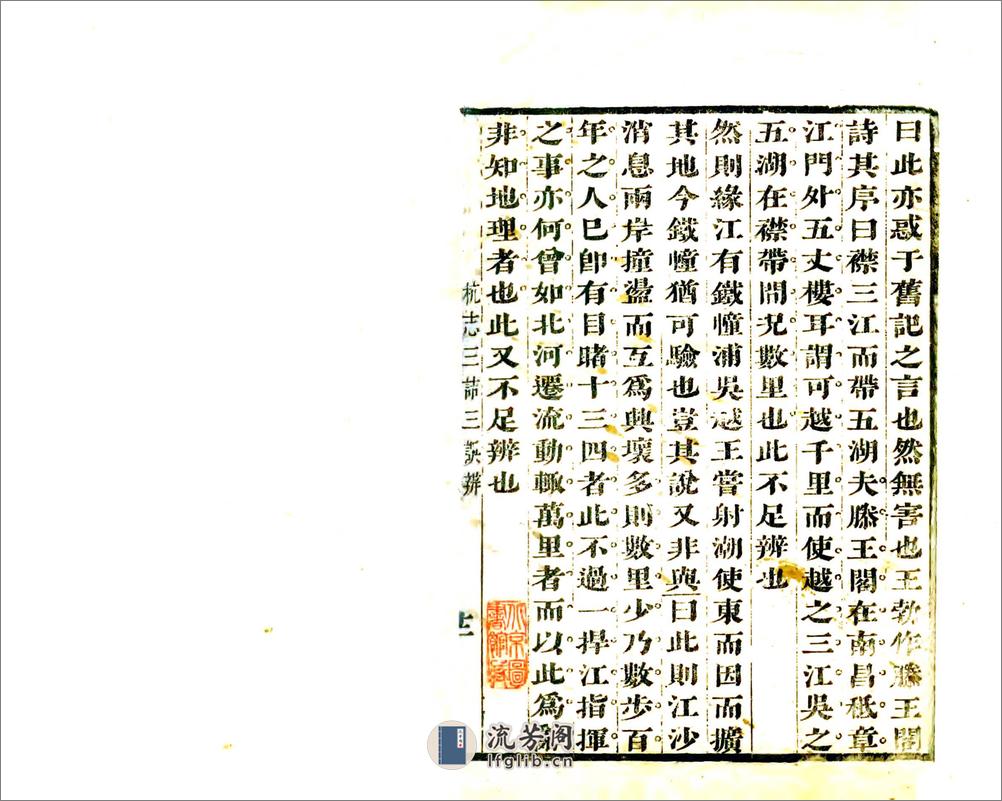 曰此亦惑于舊記之言也然無害也王勃作滕王閣
詩其序曰襟三江而帶五湖夫滕王閣在南昌秪章
江門外五丈樓耳謂可越千里而使越之三江吳之
五湖在襟帶間况數里也此不足辨也
然則緣江有鐵幢浦吳越王嘗射潮使東而因而擴
其地今鐵幢猶可驗也豈其說又非與曰此則江沙
消息兩岸撞盪而互爲興壞多則數里少乃數步百
年之人已卽有目睹十三四者此不過一捍江指揮
之事亦何曾如北河遷流動輒萬里者而以此爲
非知地理者也此又不足辨也
杭志三詰三誤辨
流芳閣
lfglib.cn